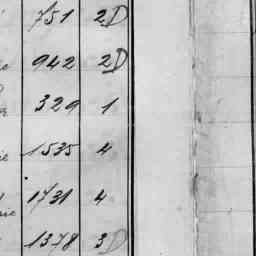 751 2D
942 2D
329 1
1535 4
1731 4
1378 3D